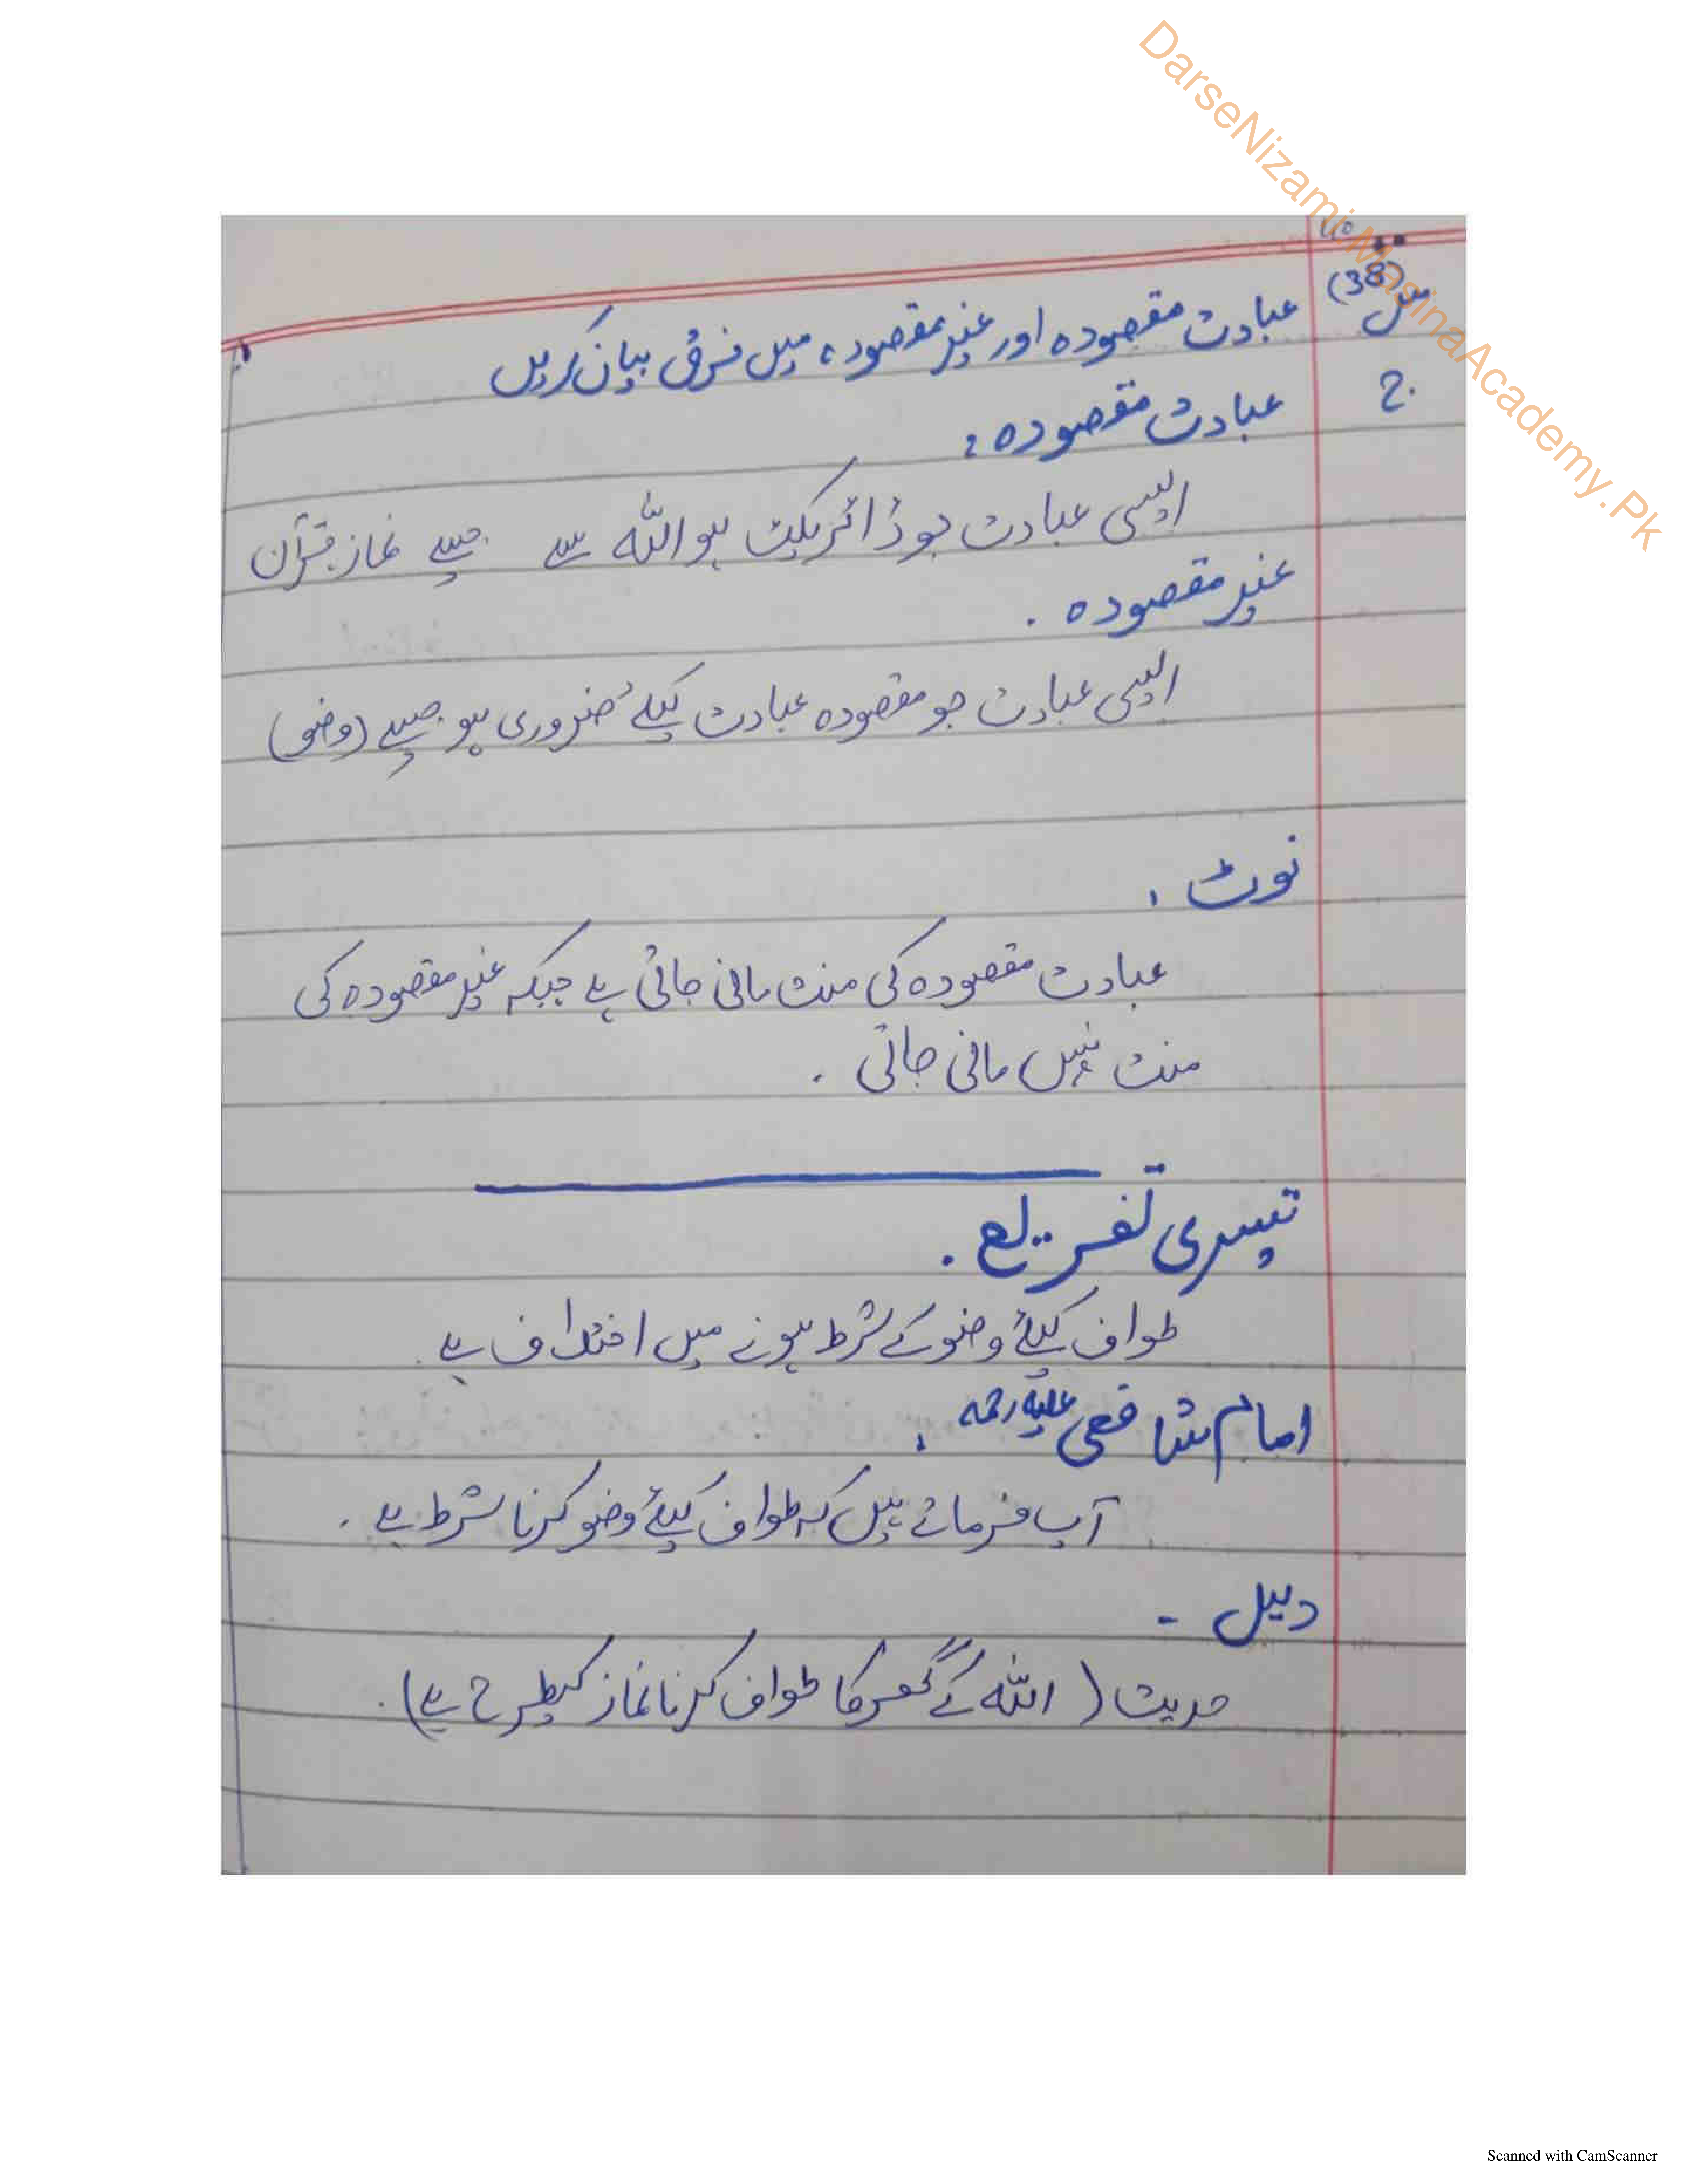 DarseNizami.MadinaAcademy.Pk
س(38) عبادت مقصودہ اور غیر مقصودہ میں فرق بیان کریں
ج. عبادت مقصودہ:
ایسی عبادت جو ڈائریکٹ ہو اللہ سے جیسے نماز، قرآن
غیر مقصودہ .
ایسی عبادت جو مقصودہ عبادت کیلئے ضروری ہو جیسے (وضو)
نوٹ .
عبادت مقصودہ کی منت مانی جاتی ہے جبکہ غیر مقصودہ کی
منت نہیں مانی جاتی .
تیسری تفریع .
طواف کیلئے وضو کے شرط ہونے میں اختلاف ہے .
امام شافعی علیہ رحمہ :
آپ فرماتے ہیں کہ طواف کیلئے وضو کرنا شرط ہے .
دلیل -
حدیث ( اللہ کے گھر کا طواف کرنا نماز کیطرح ہے) .
Scanned with CamScanner